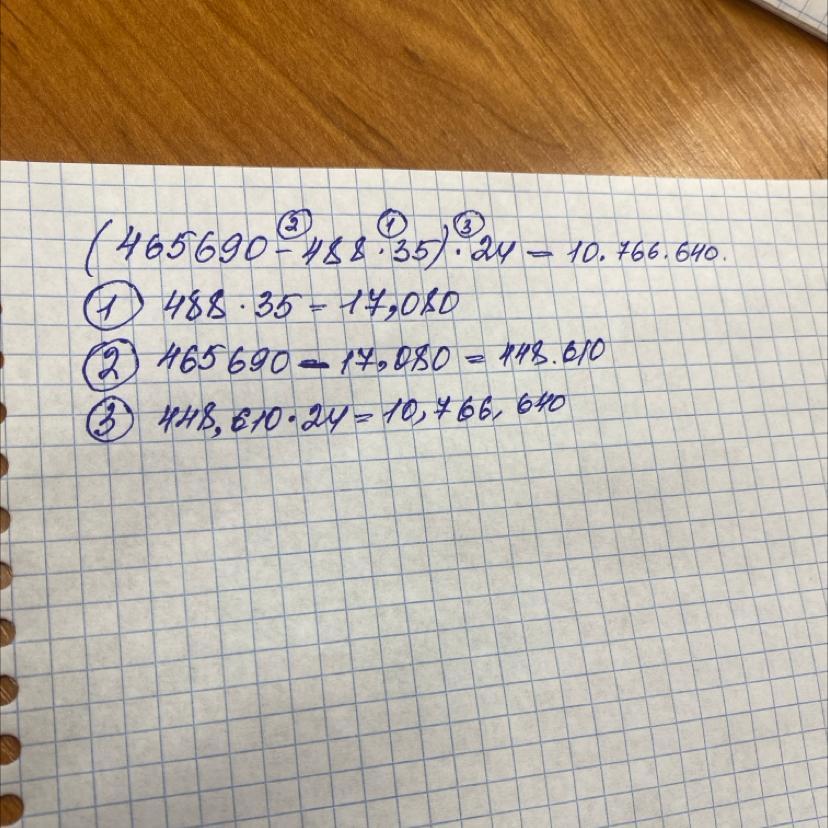 (465690 - 488 · 35) · 24 = 10.766.640.
② ① ③
① 488 · 35 = 17,080
② 465690 - 17,080 = 448.610
③ 448,610 · 24 = 10,766,640